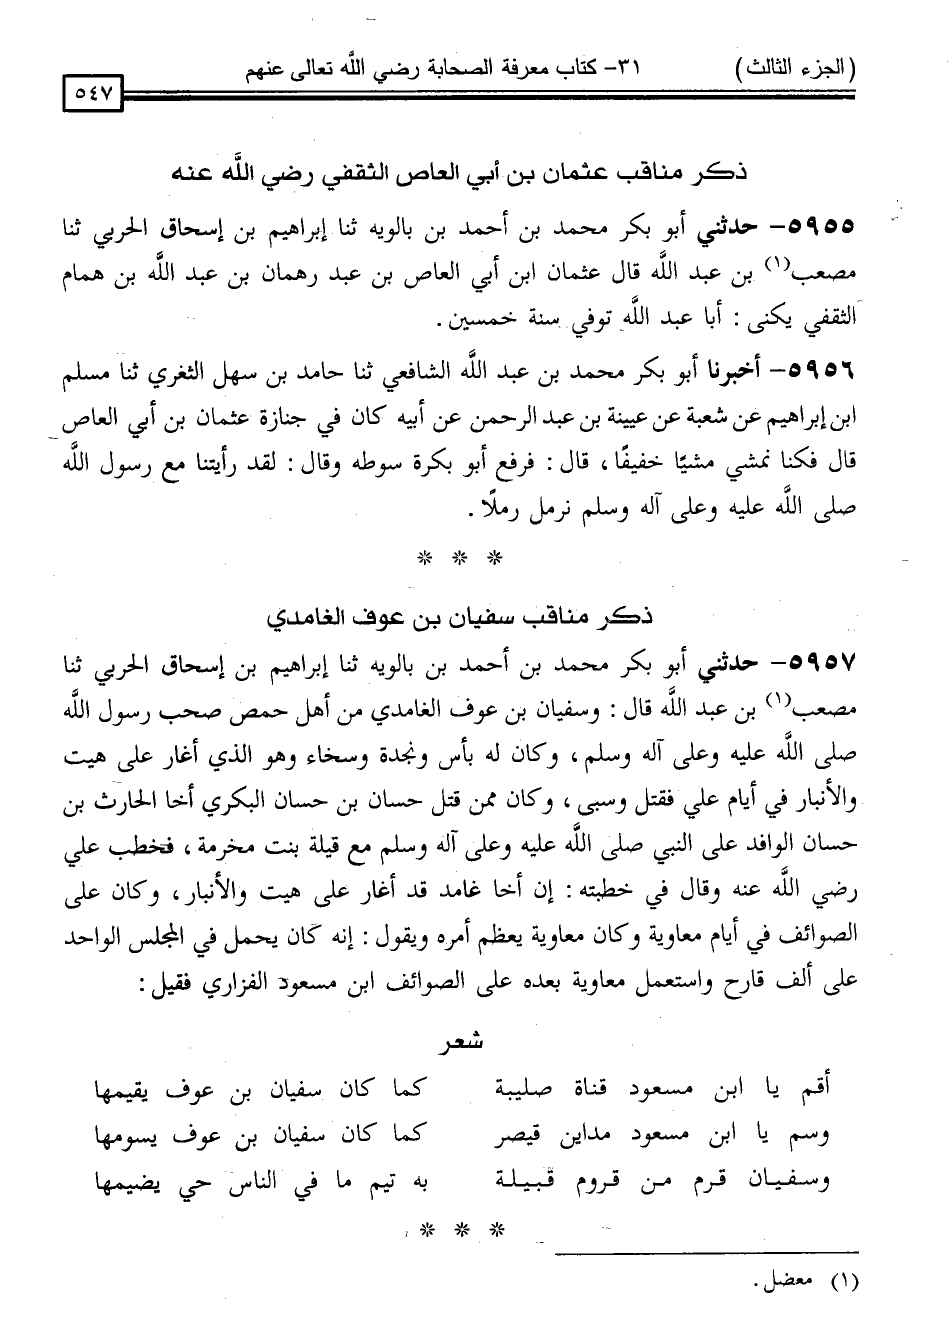 (الجزء الثالث) ٣١- كتاب معرفة الصحابة رضي الله تعالى عنهم
٥٤٧
ذكر مناقب عثمان بن أبي العاص الثقفي رضي الله عنه
٥٩٥٥- حدثني أبو بكر محمد بن أحمد بن بالويه ثنا إبراهيم بن إسحاق الحربي ثنا
مصعب(١) بن عبد الله قال عثمان ابن أبي العاص بن عبد رهمان بن عبد الله بن همام
الثقفي يكنى : أبا عبد الله توفي سنة خمسين .
٥٩٥٦- أخبرنا أبو بكر محمد بن عبد الله الشافعي ثنا حامد بن سهل الثغري ثنا مسلم
ابن إبراهيم عن شعبة عن عيينة بن عبد الرحمن عن أبيه كان في جنازة عثمان بن أبي العاص
قال فكنا نمشي مشيًا خفيفًا ، قال : فرفع أبو بكرة سوطه وقال : لقد رأيتنا مع رسول الله
صلى الله عليه وعلى آله وسلم نرمل رملًا .
* * *
ذكر مناقب سفيان بن عوف الغامدي
٥٩٥٧- حدثني أبو بكر محمد بن أحمد بن بالويه ثنا إبراهيم بن إسحاق الحربي ثنا
مصعب(١) بن عبد الله قال : وسفيان بن عوف الغامدي من أهل حمص صحب رسول الله
صلى الله عليه وعلى آله وسلم ، وكان له بأس ونجدة وسخاء وهو الذي أغار على هيت
والأنبار في أيام علي فقتل وسبى ، وكان ممن قتل حسان بن حسان البكري أخا الحارث بن
حسان الوافد على النبي صلى الله عليه وعلى آله وسلم مع قيلة بنت مخرمة ، فخطب علي
رضي الله عنه وقال في خطبته : إن أخا غامد قد أغار على هيت والأنبار ، وكان على
الصوائف في أيام معاوية وكان معاوية يعظم أمره ويقول : إنه كان يحمل في المجلس الواحد
على ألف قارح واستعمل معاوية بعده على الصوائف ابن مسعود الفزاري فقيل :
شعر
أقم يا ابن مسعود قناة صليبة كما كان سفيان بن عوف يقيمها
وسم يا ابن مسعود مداين قيصر كما كان سفيان بن عوف يسومها
وسفيان قرم من قروم قبيلة به تيم ما في الناس حي يضيمها
* * *
(١) معضل .